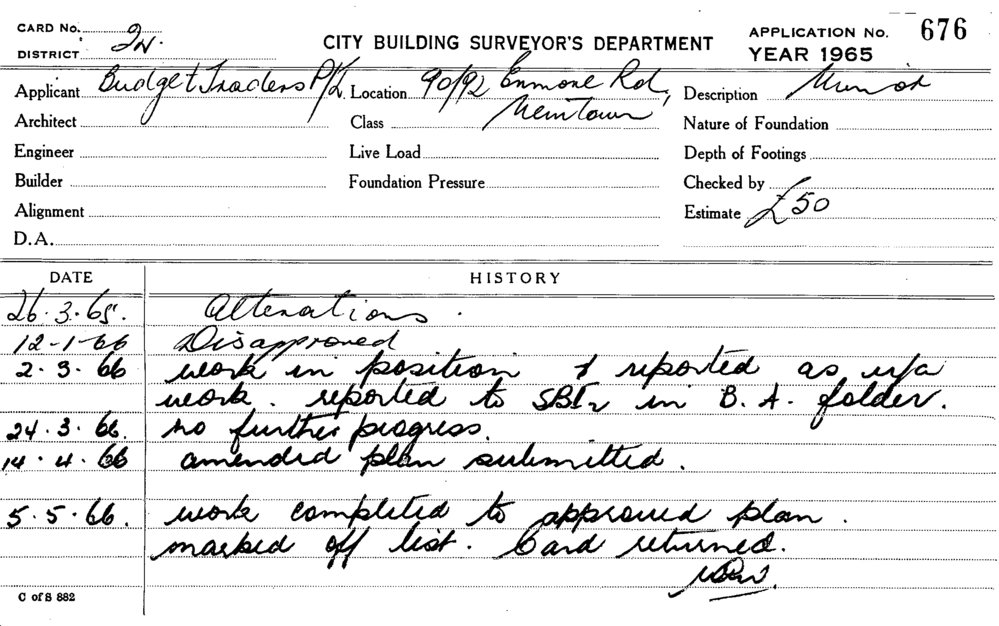 CARD No.
DISTRICT 2W.
CITY BUILDING SURVEYOR'S DEPARTMENT
APPLICATION No. 676
YEAR 1965
Applicant Budget Traders P/L. Location 90/92 Enmore Rd, Description Minor
Architect Class Newtown Nature of Foundation
Engineer Live Load Depth of Footings
Builder Foundation Pressure Checked by
Alignment Estimate £50
D.A.
DATE HISTORY
26.3.65. Alterations.
12-1-66 Disapproved
2.3.66 work in position & reported as u/a
work. reported to SBI in B.A. folder.
24.3.66. no further progress.
14.4.66 amended plan submitted.
5.5.66. work completed to approved plan.
marked off list. Card returned.
C of S 882